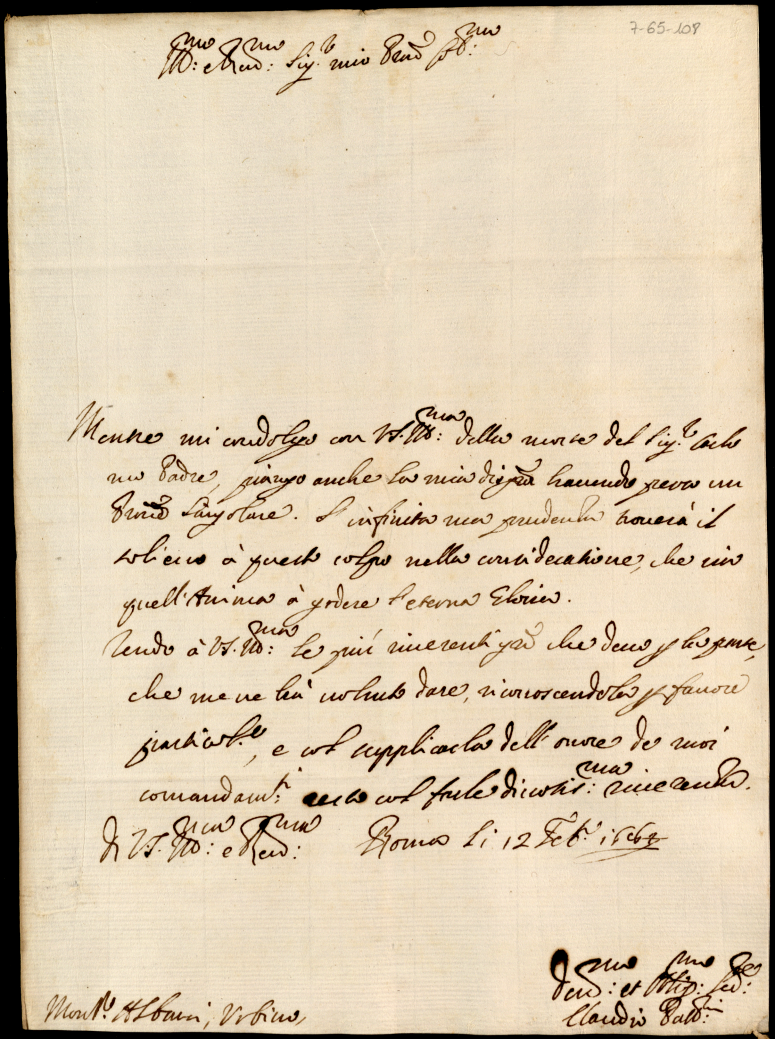 7-65-108
Ill:mo e Rev:mo Sig.r mio Pron Col:mo
Mentre mi condolgo con VS. Ill:ma della morte del Sig.r Carlo
suo Padre, piango anche la mia disgra havendo perso un
Prone singolare. L'infinita sua prudenza trouerà il
solieuo à questo colpo nella consideratione, che sia
quell'Anima à godere l'eterna Gloria.
Rendo à VS. Ill:ma le più riuerenti grē che deuo p la parte,
che me ne hà uoluto dare, riconoscendola p fauore
particol.e, e col supplicarla dell'onore de suoi
comandam.ti resto col farle diuotis:ma riuerenza.
di VS. Ill:ma e Reu:ma Roma li 12 Feb.o 1663
Deu:mo et Obлig:mo Ser:re
Claudio
Mons.r Albani, Urbino,